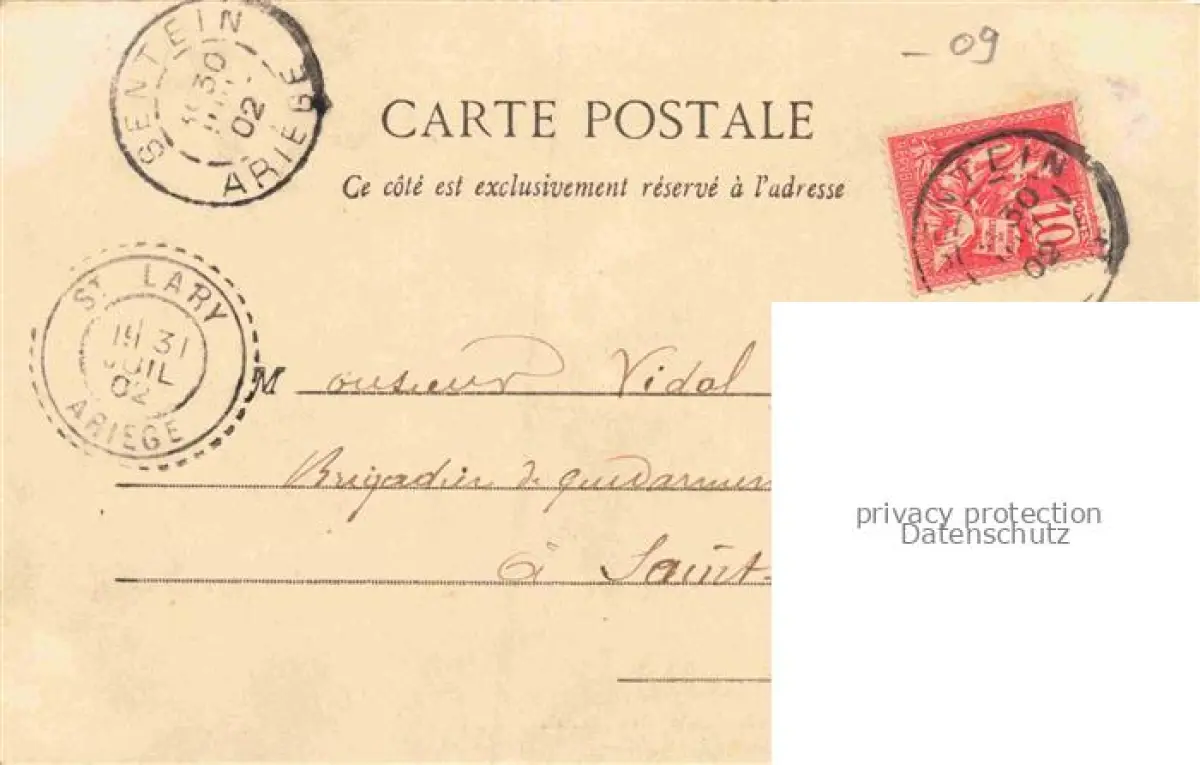 SENTEIN
30
02
ARIEGE
- 09
CARTE POSTALE
Ce côté est exclusivement réservé à l'adresse
POSTES
10
NTEIN
30
02
ST LARY
1E 31
JUIL
02
ARIEGE
Monsieur Vidal
Brigadier de gendarmer
à Saint-
privacy protection
Datenschutz